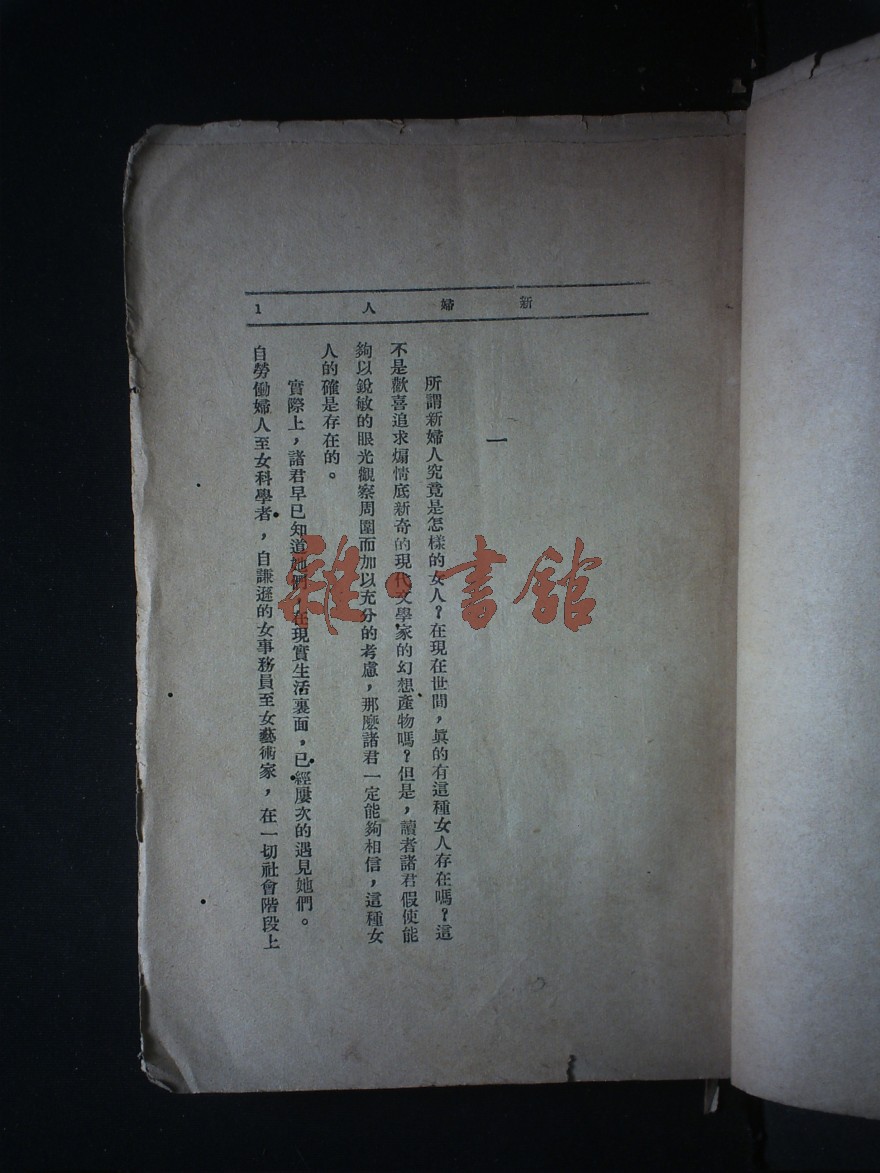 新婦人 1
一
所謂新婦人究竟是怎樣的女人？在現在世間，眞的有這種女人存在嗎？這
不是歡喜追求煽情底新奇的現代文學家的幻想產物嗎？但是，讀者諸君假使能
夠以銳敏的眼光觀察周圍而加以充分的考慮，那麼諸君一定能夠相信，這種女
人的確是存在的。
實際上，諸君早已知道她們，在現實生活裏面，已經屢次的遇見她們。
自勞働婦人至女科學者，自謙遜的女事務員至女藝術家，在一切社會階段上
雜·書館